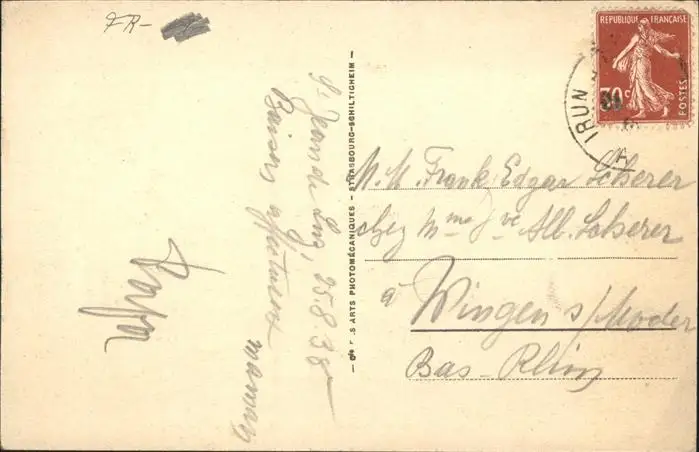 FR-
St Jean de Luz, 25.8.38
Baisers affectueux
maman
Cie DES ARTS PHOTOMÉCANIQUES - STRASBOURG-SCHILTIGHEIM -
REPUBLIQUE FRANÇAISE
POSTES
IRUN
M.M. Frank, Edgar Scherer
chez Mme Vve Alb. Scherer
à Wingen s/Moder
Bas-Rhin